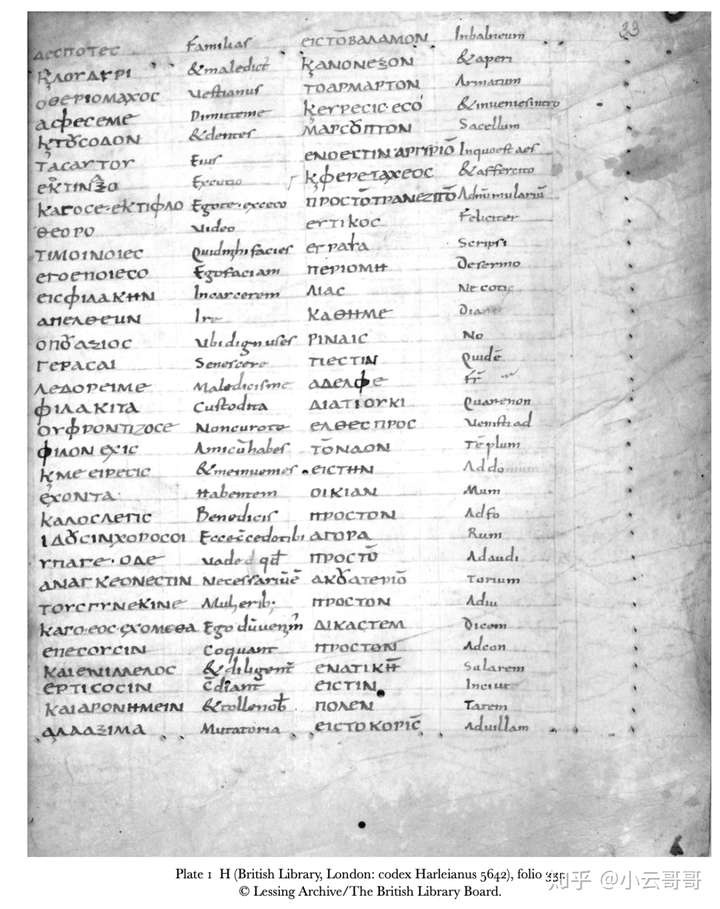 33
ΔΕϹΠΟΤΕϹ Familias ΕΙϹΤΟΒΑΛΑΜΟΝ Inbalneum
ΚΛΟΥΔΑΡΙ &maledict ΚΑΝΟΝΕΞΟΝ &aperi
ΟΘΕΡΙΟΜΑΧΟϹ Vestianus ΤΟΑΡΜΑΡΤΟΝ Armarum
ΑΦΕϹΕΜΕ Dimitteme ΚΕΥΡΕϹΙϹ·ΕϹΟ &inuenies intro
ΚΤȢϹΟΔΟΝ &dentes ΜΑΡϹȢΠΤΟΝ Sacellum
ΤΑϹΑΥΤΟΥ Eius ΕΝΟΕϹΤΙΝΑΡΓΙΡΙΟ Inquoestaes
ΕΚΤΙΝΑΞΟ Excutio ΚΦΕΡΕΤΑΧΕΟϹ &affercito
ΚΑΓΟϹΕ·ΕΚΤΙΦΛΟ Egote·exceco ΠΡΟϹΤΟΤΡΑΠΕΖΙΤΟ Adnummulariū
ΘΕΟΡΟ Video ΕΥΤΙΚΟϹ Feliciter
ΤΙΜΟΙΝΟΙΕϹ Quidmihifacies ΕΓΡΑΤΑ Scripsi
ΕΓΟΕΠΟΙΕϹΟ Egofaciam ΠΕΡΙΟΜΗ Desermo
ΕΙϹΦΙΛΑΚΗΝ Incarcerem ΛΙΑϹ Ne cotic
ΑΠΕΛΘΕΙΝ Ire ΚΑΘΗΜΕ
ΟΠȢΑΞΙΟϹ Vbi dignus es ΡΙΝΑΙϹ No
ΓΕΡΑϹΑΙ Senescere ΤΙΕϹΤΙΝ Quidē
ΛΕΔΟΡΕΙΜΕ Maledicisme ΑΔΕΛΦΕ
ΦΙΛΑΚΙΤΑ Custodita ΔΙΑΤΙΟΥΚΙ Quarenon
ΟΥΦΡΟΝΤΙΖΟϹΕ Noncurote ΕΛΘΕϹ ΠΡΟϹ Venisti ad
ΦΙΛΟΝ ΕΧΙϹ Amicū habes ΤΟΝΔΟΝ Tēplum
ΚΜΕ ΕΙΡΕϹΙϹ &meinuenies ΕΙϹΤΗΝ Addomium
ΕΧΟΝΤΑ Habentem ΟΙΚΙΑΝ Mum
ΚΑΛΟϹΛΕΓΙϹ Benedicis ΠΡΟϹΤΟΝ Adfo
ΙΔȢϹΙΝΧΟΡΟϹΟΙ Eccecedotibi ΑΓΟΡΑ Rum
ΥΠΑΓΕ·ΟΔΕ ΠΡΟϹΤΟ Adaudi
ΑΝΑΓΚΕΟΝΕϹΤΙΝ Necessariūē ΑΚȢΑΤΕΡΙΟ Torium
ΤΟΥϹΓΥΝΕΚΙΝΕ Mulierib; ΠΡΟϹΤΟΝ Adiu
ΚΑΓΟ·ΕΟϹ·ΕΧΟΜΕΘΑ ΔΙΚΑϹΤΕΜ Dicem
ΕΠΕϹΟΥϹΙΝ Coquant ΠΡΟϹΤΟΝ Adcon
ΚΑΙΕΝΙΛΛΕΛΟϹ &diligent ΕΝΑΤΙΚΗ Sularem
ΕΡΤΙϹΟϹΙΝ cdiant ΕΙϹΤΙΝ Inciui
ΚΑΙΑΡΟΝΗΜΕΙΝ &tollenob ΠΟΛΕΝ Tatem
ΑΛΛΑΞΙΜΑ Mutatoria ΕΙϹΤΟΚΟΡΙϹ Aduillam
Plate 1 H (British Library, London: codex Harleianus 5642), folio 33r.
© Lessing Archive/The British Library Board.
知乎 @小云哥哥